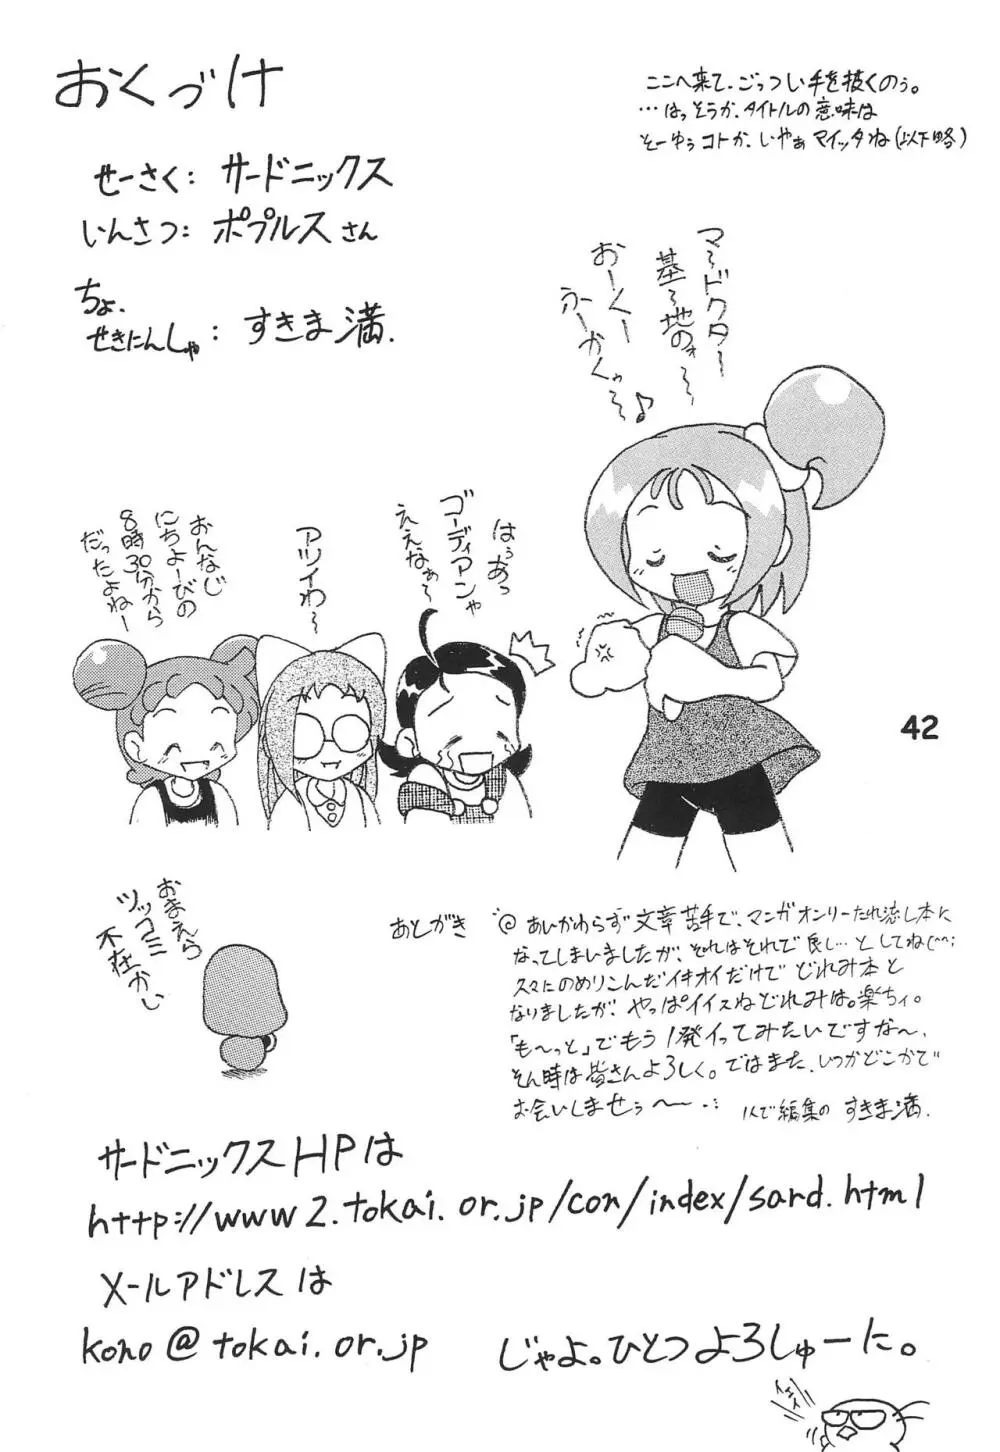 おくづけ
ここへ来て、ごっつい手を抜くのぅ。
…はっそうか、タイトルの意味は
そーゆぅコトか、いやぁマイッタね(以下略)
せーさく：サードニックス
いんさつ：ポプルスさん
ちょ.
せきにんしゃ：すきま満.
マ〜ドクター
基〜地のォ〜
おーくー
ふーかくゥ〜♪
はぅあっ
ゴーディアンや
ええなぁ〜
アツイわ〜
おんなじ
にちよーびの
8時30分から
だったよねー
42
おまえら
ツッコミ
不在かい
あとがき
@あいかわらず文章苦手で、マンガオンリーたれ流し本に
なってしまいましたが、それはそれで良し…としてね(^^;
久々にのめりこんだイキオイだけでどれみ本と
なりましたが、やっぱイイスねどれみは。楽ちィ。
「も〜っと」でもう1発イってみたいですな〜、
そん時は皆さんよろしく。ではまた、いつかどこかで
お会いしませぅ〜
1人で編集の すきま満.
サードニックスHPは
http://www2.tokai.or.jp/con/index/sard.html
メールアドレスは
kono@tokai.or.jp
じゃよ。ひとつよろしゅーに。